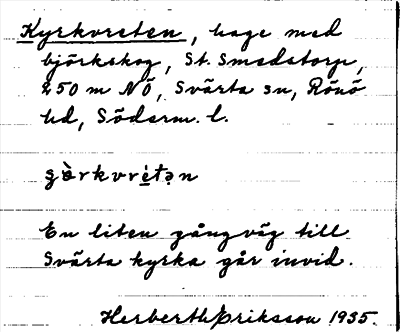 Kyrkvreten, hage med
björkskog, St. Smedstorp,
250 m NÖ, Svärta sn, Rönö
hd, Söderm. l.
En liten gångväg till
Svärta kyrka går invid.
Herberth Eriksson 1935.